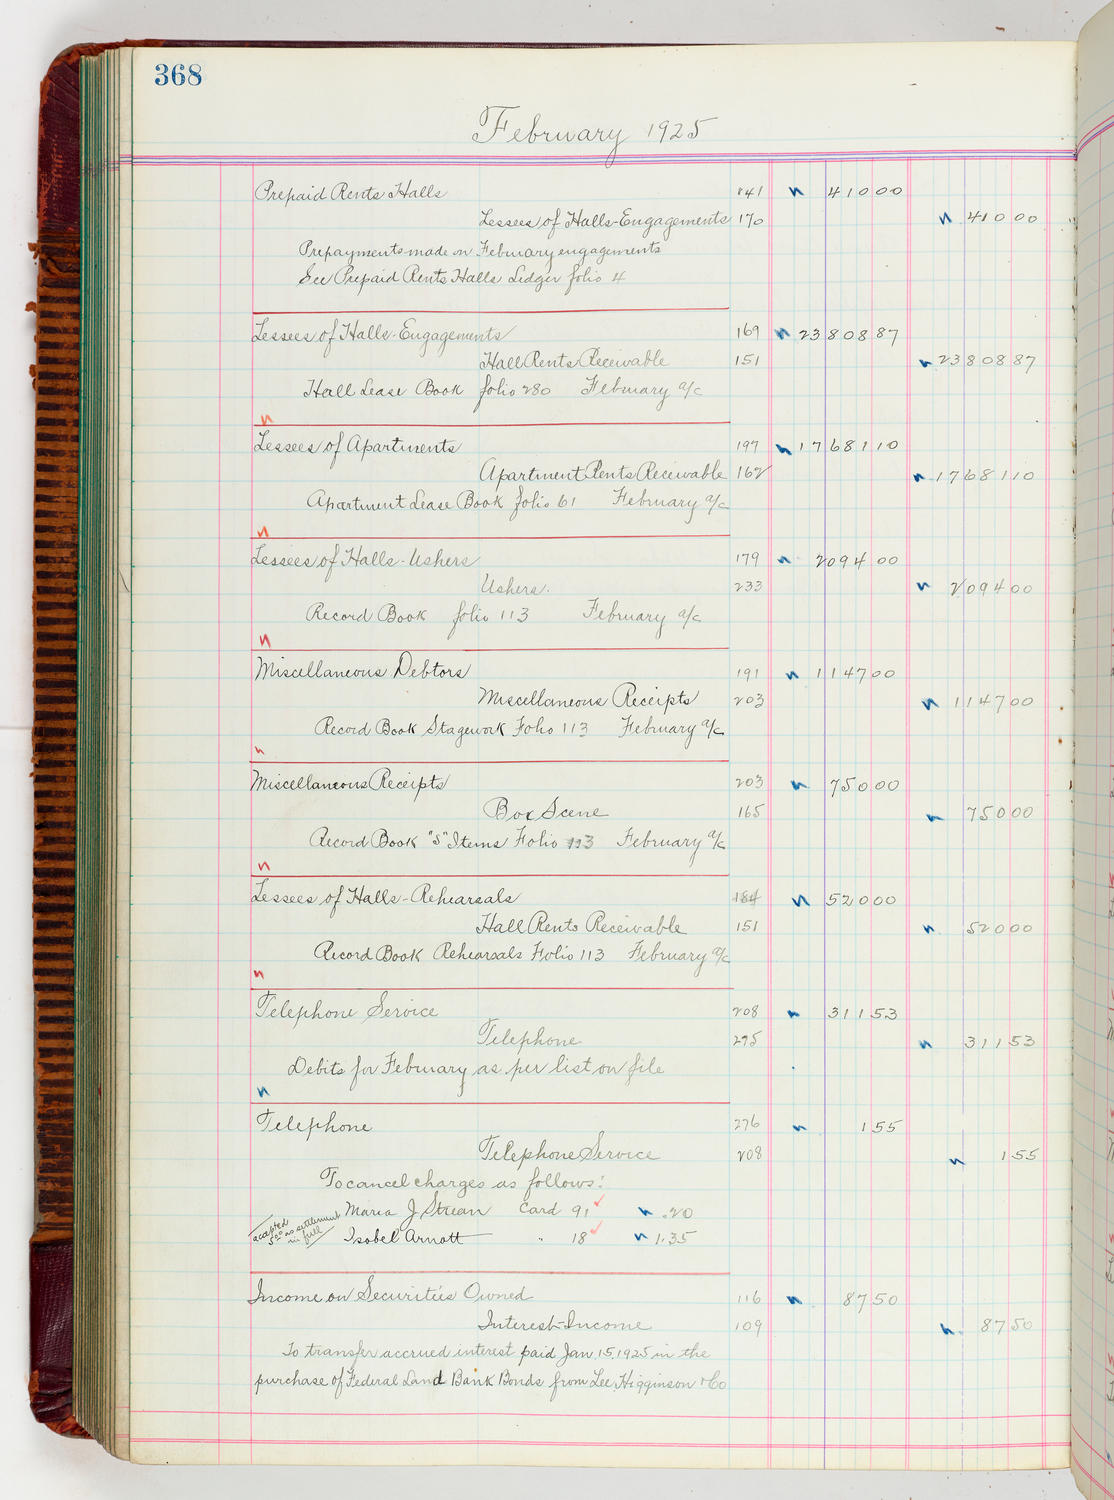 368
February 1925
Prepaid Rents Halls 141 41000
Lessees of Halls-Engagements 170 41000
Prepayments made on February engagements
See Prepaid Rents Halls Ledger folio 4
Lessees of Halls-Engagements 169 2380887
Hall Rents Receivable 151 2380887
Hall Lease Book folio 280 February a/c
Lessees of Apartments 197 1768110
Apartment Rents Receivable 162 1768110
Apartment Lease Book folio 61 February a/c
Lessees of Halls-Ushers 179 209400
Ushers. 233 209400
Record Book folio 113 February a/c
Miscellaneous Debtors 191 114700
Miscellaneous Receipts 203 114700
Record Book Stagework Folio 113 February a/c
Miscellaneous Receipts 203 75000
Box Scene 165 75000
Record Book "S" Items Folio 113 February a/c
Lessees of Halls-Rehearsals 184 52000
Hall Rents Receivable 151 52000
Record Book Rehearsals Folio 113 February a/c
Telephone Service 208 31153
Telephone 295 31153
Debits for February as per list on file
Telephone 276 155
Telephone Service 208 155
To cancel charges as follows:
Maria J Struan Card 91 .20
accepted 5.00 as settlement in full
Isobel Arnott " 18 1.35
Income on Securities Owned 116 8750
Interest-Income 109 8750
To transfer accrued interest paid Jan. 15, 1925 in the
purchase of Federal Land Bank Bonds from Lee, Higginson & Co